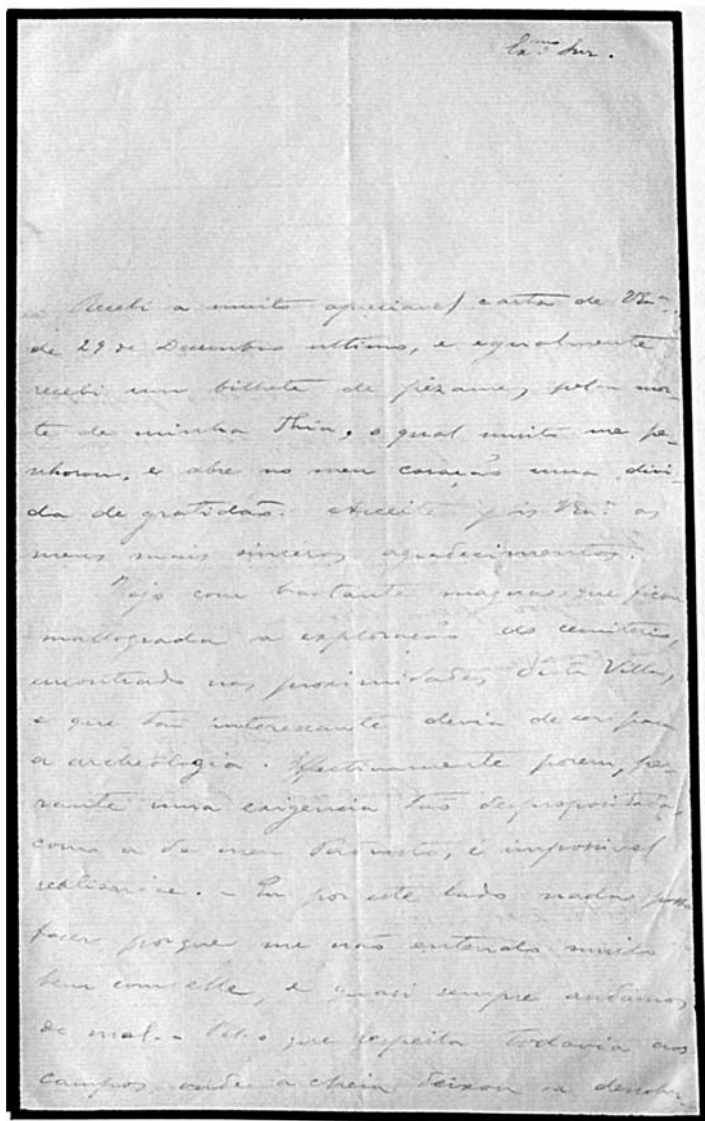 Ex.mo Snr.
Recebi a muito apreciavel carta de VEx.a
de 29 de Dezembro ultimo, e egualmente
recebi um bilhete de pêzames pela mor-
te de minha Thia, o qual muito me pe-
nhorou, e abre no meu coração uma divi-
da de gratidão. Acceite pois VEx.a os
meus mais sinceros agradecimentos.
Vejo com bastante magua, que ficou
mallograda a exploração do cemiterio,
encontrado nas proximidades d'esta Villa,
e que tão interessante devia de ser para
a archeologia. Effectivamente porem, pe-
rante uma exigencia tão despropositada,
como a de meu Parente, é impossivel
realisar-se. - Eu por este lado nada posso
fazer porque me não entendo muito
bem com elle, e quasi sempre andamos
de mal. - Pelo que respeita todavia aos
campos onde a cheia deixou a descober-